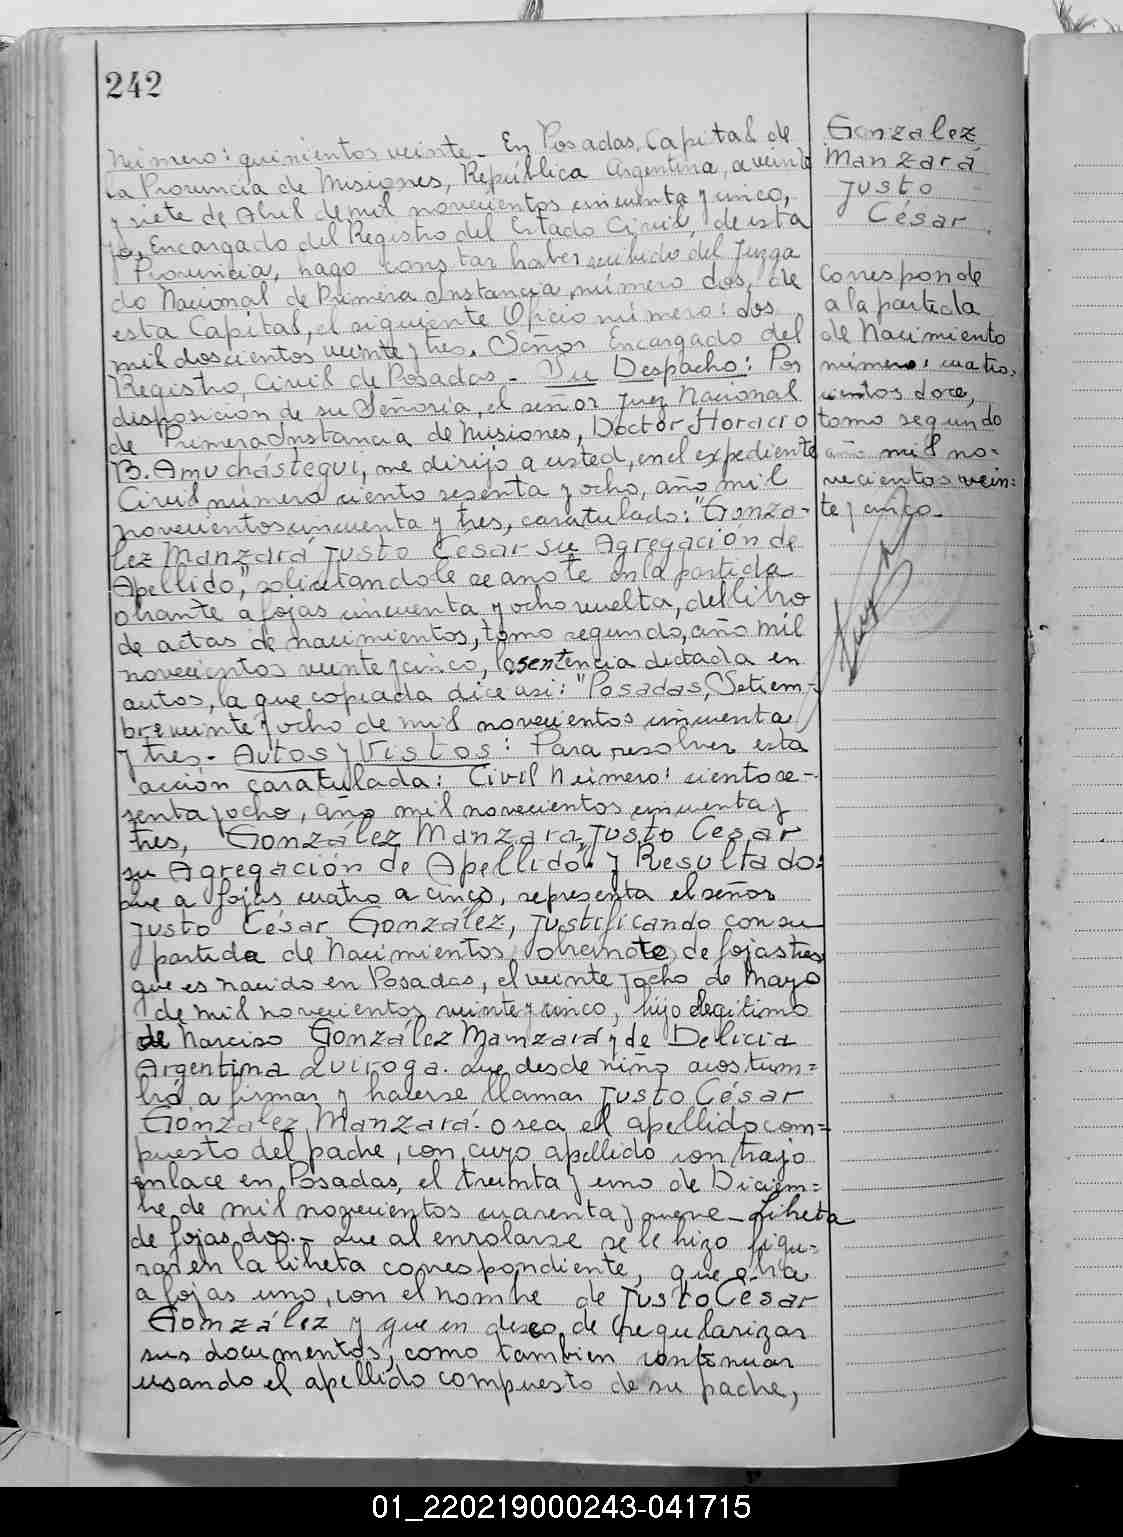 242
Número: quinientos veinte.- En Posadas, Capital de
la Provincia de Misiones, República Argentina, a veinte
y siete de Abril de mil novecientos cincuenta y cinco,
yo, Encargado del Registro del Estado Civil, de esta
Provincia, hago constar haber recibido del Juzga
do Nacional de Primera Instancia, número dos, de
esta Capital, el siguiente Oficio número: dos
mil doscientos veinte y tres. Señor Encargado del
Registro Civil de Posadas.- Su Despacho: Por
disposición de su Señoría, el señor Juez Nacional
de Primera Instancia de Misiones, Doctor Horacio
B. Amuchástegui, me dirijo a usted, en el expediente
Civil número ciento sesenta y ocho, año mil
novecientos cincuenta y tres, caratulado: "Gonza-
lez Manzará Justo César su Agregación de
Apellido", solicitandole se anote en la partida
obrante a fojas cincuenta y ocho vuelta, del libro
de actas de nacimientos, tomo segundo, año mil
novecientos veinte y cinco, la sentencia dictada en
autos, la que copiada dice asi: "Posadas, Setiem-
bre veinte y ocho de mil novecientos cincuenta
y tres.- Autos y Vistos: Para resolver esta
acción caratulada: Civil Número: ciento se-
senta y ocho, año mil novecientos cincuenta y
tres, González Manzara, Justo Cesar
su Agregación de Apellido" y Resultado:
Que a fojas cuatro a cinco, representa el señor
Justo César González, justificando con su
partida de Nacimientos obrante de fojas tres
que es nacido en Posadas, el veinte y ocho de Mayo
de mil novecientos veinte y cinco, hijo legítimo
de Narciso González Manzará y de Delicia
Argentina Quiroga. Que desde niño acostum=
bró a firmar y hacerse llamar Justo César
González Manzará. o sea el apellido com=
puesto del padre, con cuyo apellido contrajo
enlace en Posadas, el treinta y uno de Diciem=
bre de mil novecientos cuarenta y nueve - Libreta
de fojas dos.- Que al enrolarse se le hizo figu=
rar en la libreta correspondiente, que obra
a fojas uno, con el nombre de Justo César
González y que en deseo de regularizar
sus documentos, como tambien continuar
usando el apellido compuesto de su padre,
Gonzalez
Manzará
Justo
César.
Corresponde
a la partida
de Nacimiento
número: cuatro=
cientos doce,
tomo segundo
año mil no=
vecientos vein=
te y cinco.-
01_220219000243-041715